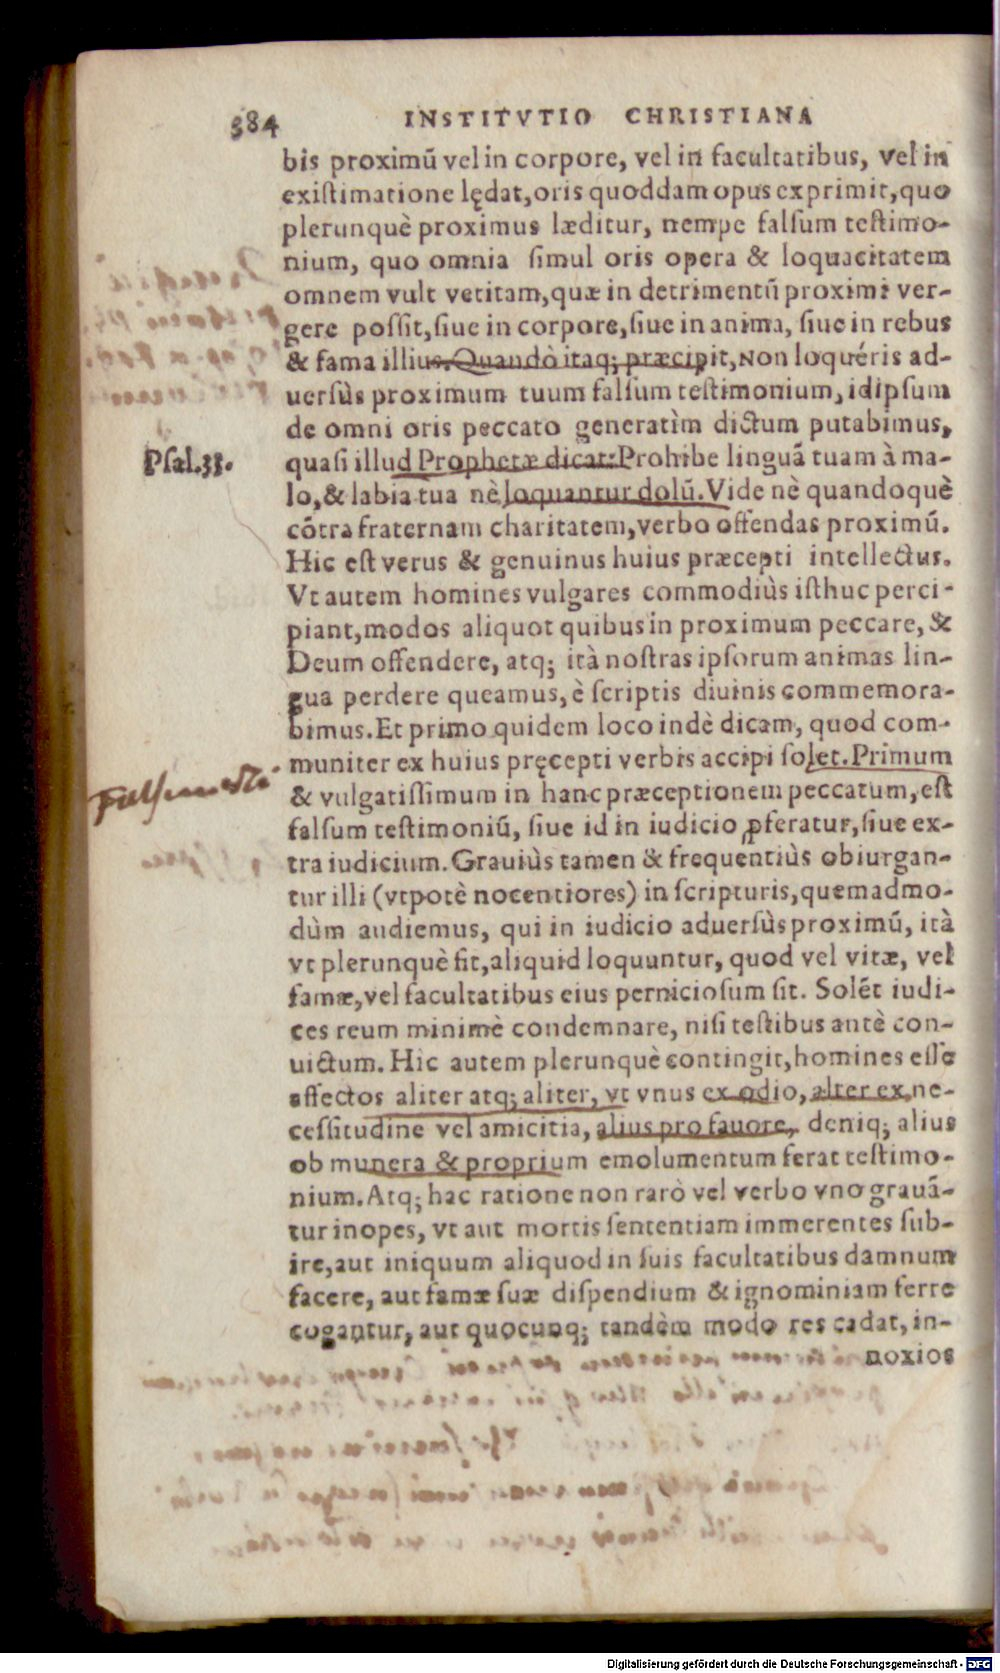 384 INSTITVTIO CHRISTIANA
bis proximũ vel in corpore, vel in facultatibus, vel in
existimatione lędat, oris quoddam opus exprimit, quo
plerunquè proximus læditur, nempe falsum testimo-
nium, quo omnia simul oris opera & loquacitatem
omnem vult vetitam, quæ in detrimentũ proximi ver-
gere possit, siue in corpore, siue in anima, siue in rebus
& fama illius. Quandò itaq; præcipit, Non loquéris ad-
uersùs proximum tuum falsum testimonium, id ipsum
de omni oris peccato generatìm dictum putabimus,
Psal.33. quasi illud Prophetæ dicat: Prohibe linguã tuam à ma-
lo, & labia tua nè loquantur dolũ. Vide nè quandoquè
cõtra fraternam charitatem, verbo offendas proximũ.
Hic est verus & genuinus huius præcepti intellectus.
Vt autem homines vulgares commodiùs isthuc perci-
piant, modos aliquot quibus in proximum peccare, &
Deum offendere, atq; ità nostras ipsorum animas lin-
gua perdere queamus, è scriptis diuinis commemora-
bimus. Et primo quidem loco indè dicam, quod com-
muniter ex huius pręcepti verbis accipi solet. Primum
& vulgatissimum in hanc præceptionem peccatum, est
falsum testimoniũ, siue id in iudicio ꝓferatur, siue ex-
tra iudicium. Grauiùs tamen & frequentiùs obiurgan-
tur illi (vtpotè nocentiores) in scripturis, quemadmo-
dùm audiemus, qui in iudicio aduersùs proximũ, ità
vt plerunquè fit, aliquid loquuntur, quod vel vitæ, vel
famæ, vel facultatibus eius perniciosum sit. Solẽt iudi-
ces reum minimè condemnare, nisi testibus antè con-
uictum. Hìc autem plerunquè contingit, homines esse
affectos aliter atq; aliter, vt vnus ex odio, alter ex ne-
cessitudine vel amicitia, alius pro fauore, deniq; alius
ob munera & proprium emolumentum ferat testimo-
nium. Atq; hac ratione non rarò vel verbo vno grauã-
tur inopes, vt aut mortis sententiam immerentes sub-
ire, aut iniquum aliquod in suis facultatibus damnum
facere, aut famæ suæ dispendium & ignominiam ferre
cogantur, aut quocunq; tandèm modo res cadat, in-
noxios
Digitalisierung gefördert durch die Deutsche Forschungsgemeinschaft - DFG